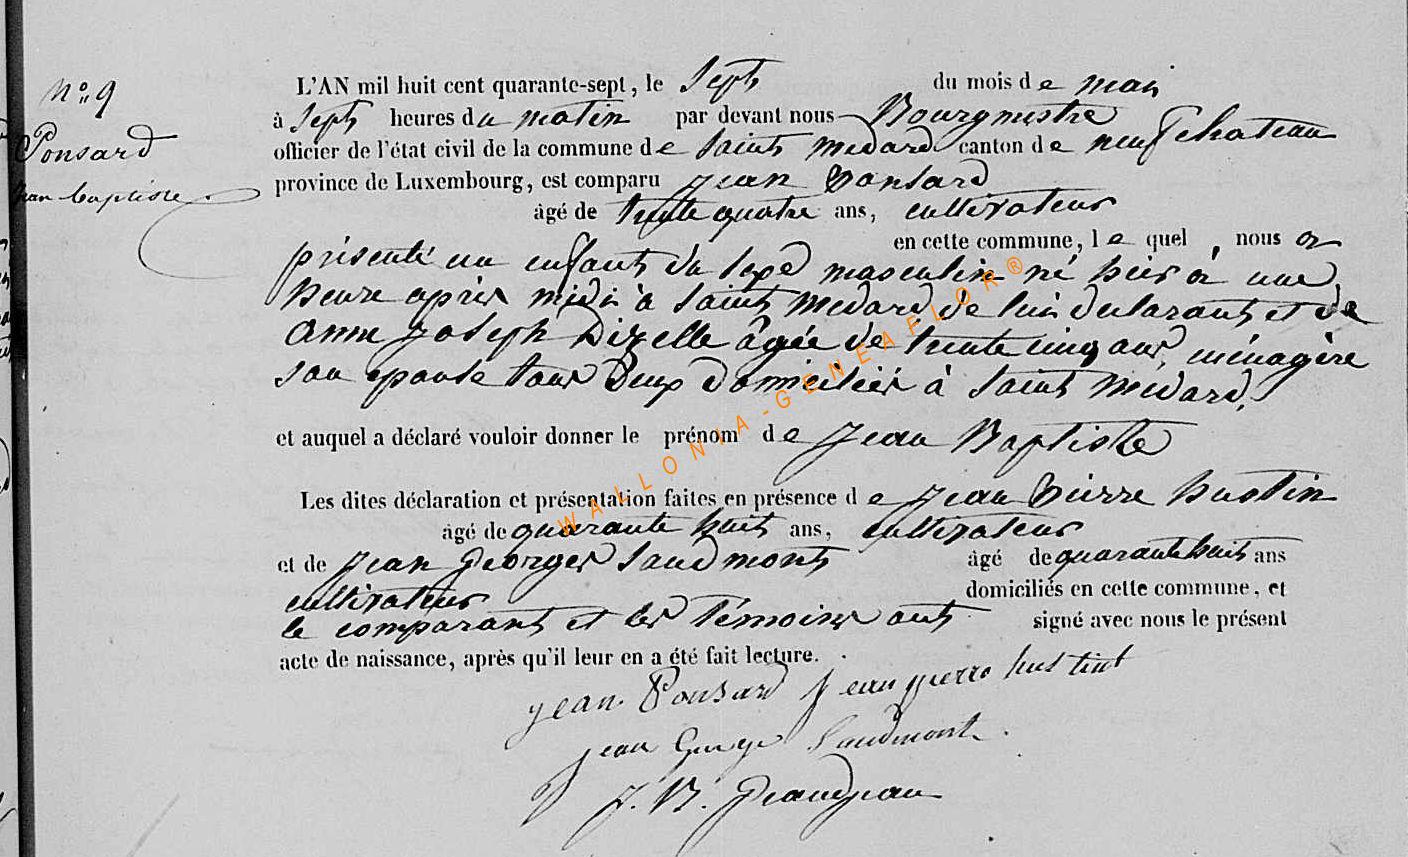 N° 9
Ponsard
Jean baptiste
L'AN mil huit cent quarante-sept, le Sept du mois de mai
à Sept heures du matin par devant nous Bourgmestre
officier de l'état civil de la commune de Saint Medard canton de neufchateau
province de Luxembourg, est comparu Jean Ponsard
âgé de trente quatre ans, cultivateur
en cette commune, le quel , nous a
présenté un enfant du sexe masculin né hier à une
heure après midi à Saint Medard de lui declarant et de
Anne Joseph Dizelle âgée de trente cinq ans, ménagère
son épouse tous deux domiciliés à Saint Médard,
et auquel a déclaré vouloir donner le prénom de Jean Baptiste
Les dites déclaration et présentation faites en présence de Jean Pierre hustin
âgé de quarante huit ans, cultivateur
et de Jean Georges Saudmont âgé de quarante huit ans
cultivateur domiciliés en cette commune, et
le comparant et les témoins ont signé avec nous le présent
acte de naissance, après qu'il leur en a été fait lecture.
jean Ponsard jean pierre hustint
jean George Saudmont
J. B. Grandjean
WALLONIA-GENEAFLOR®